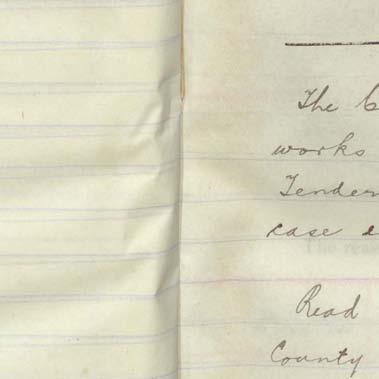 The
works
Tender
case
Read
County